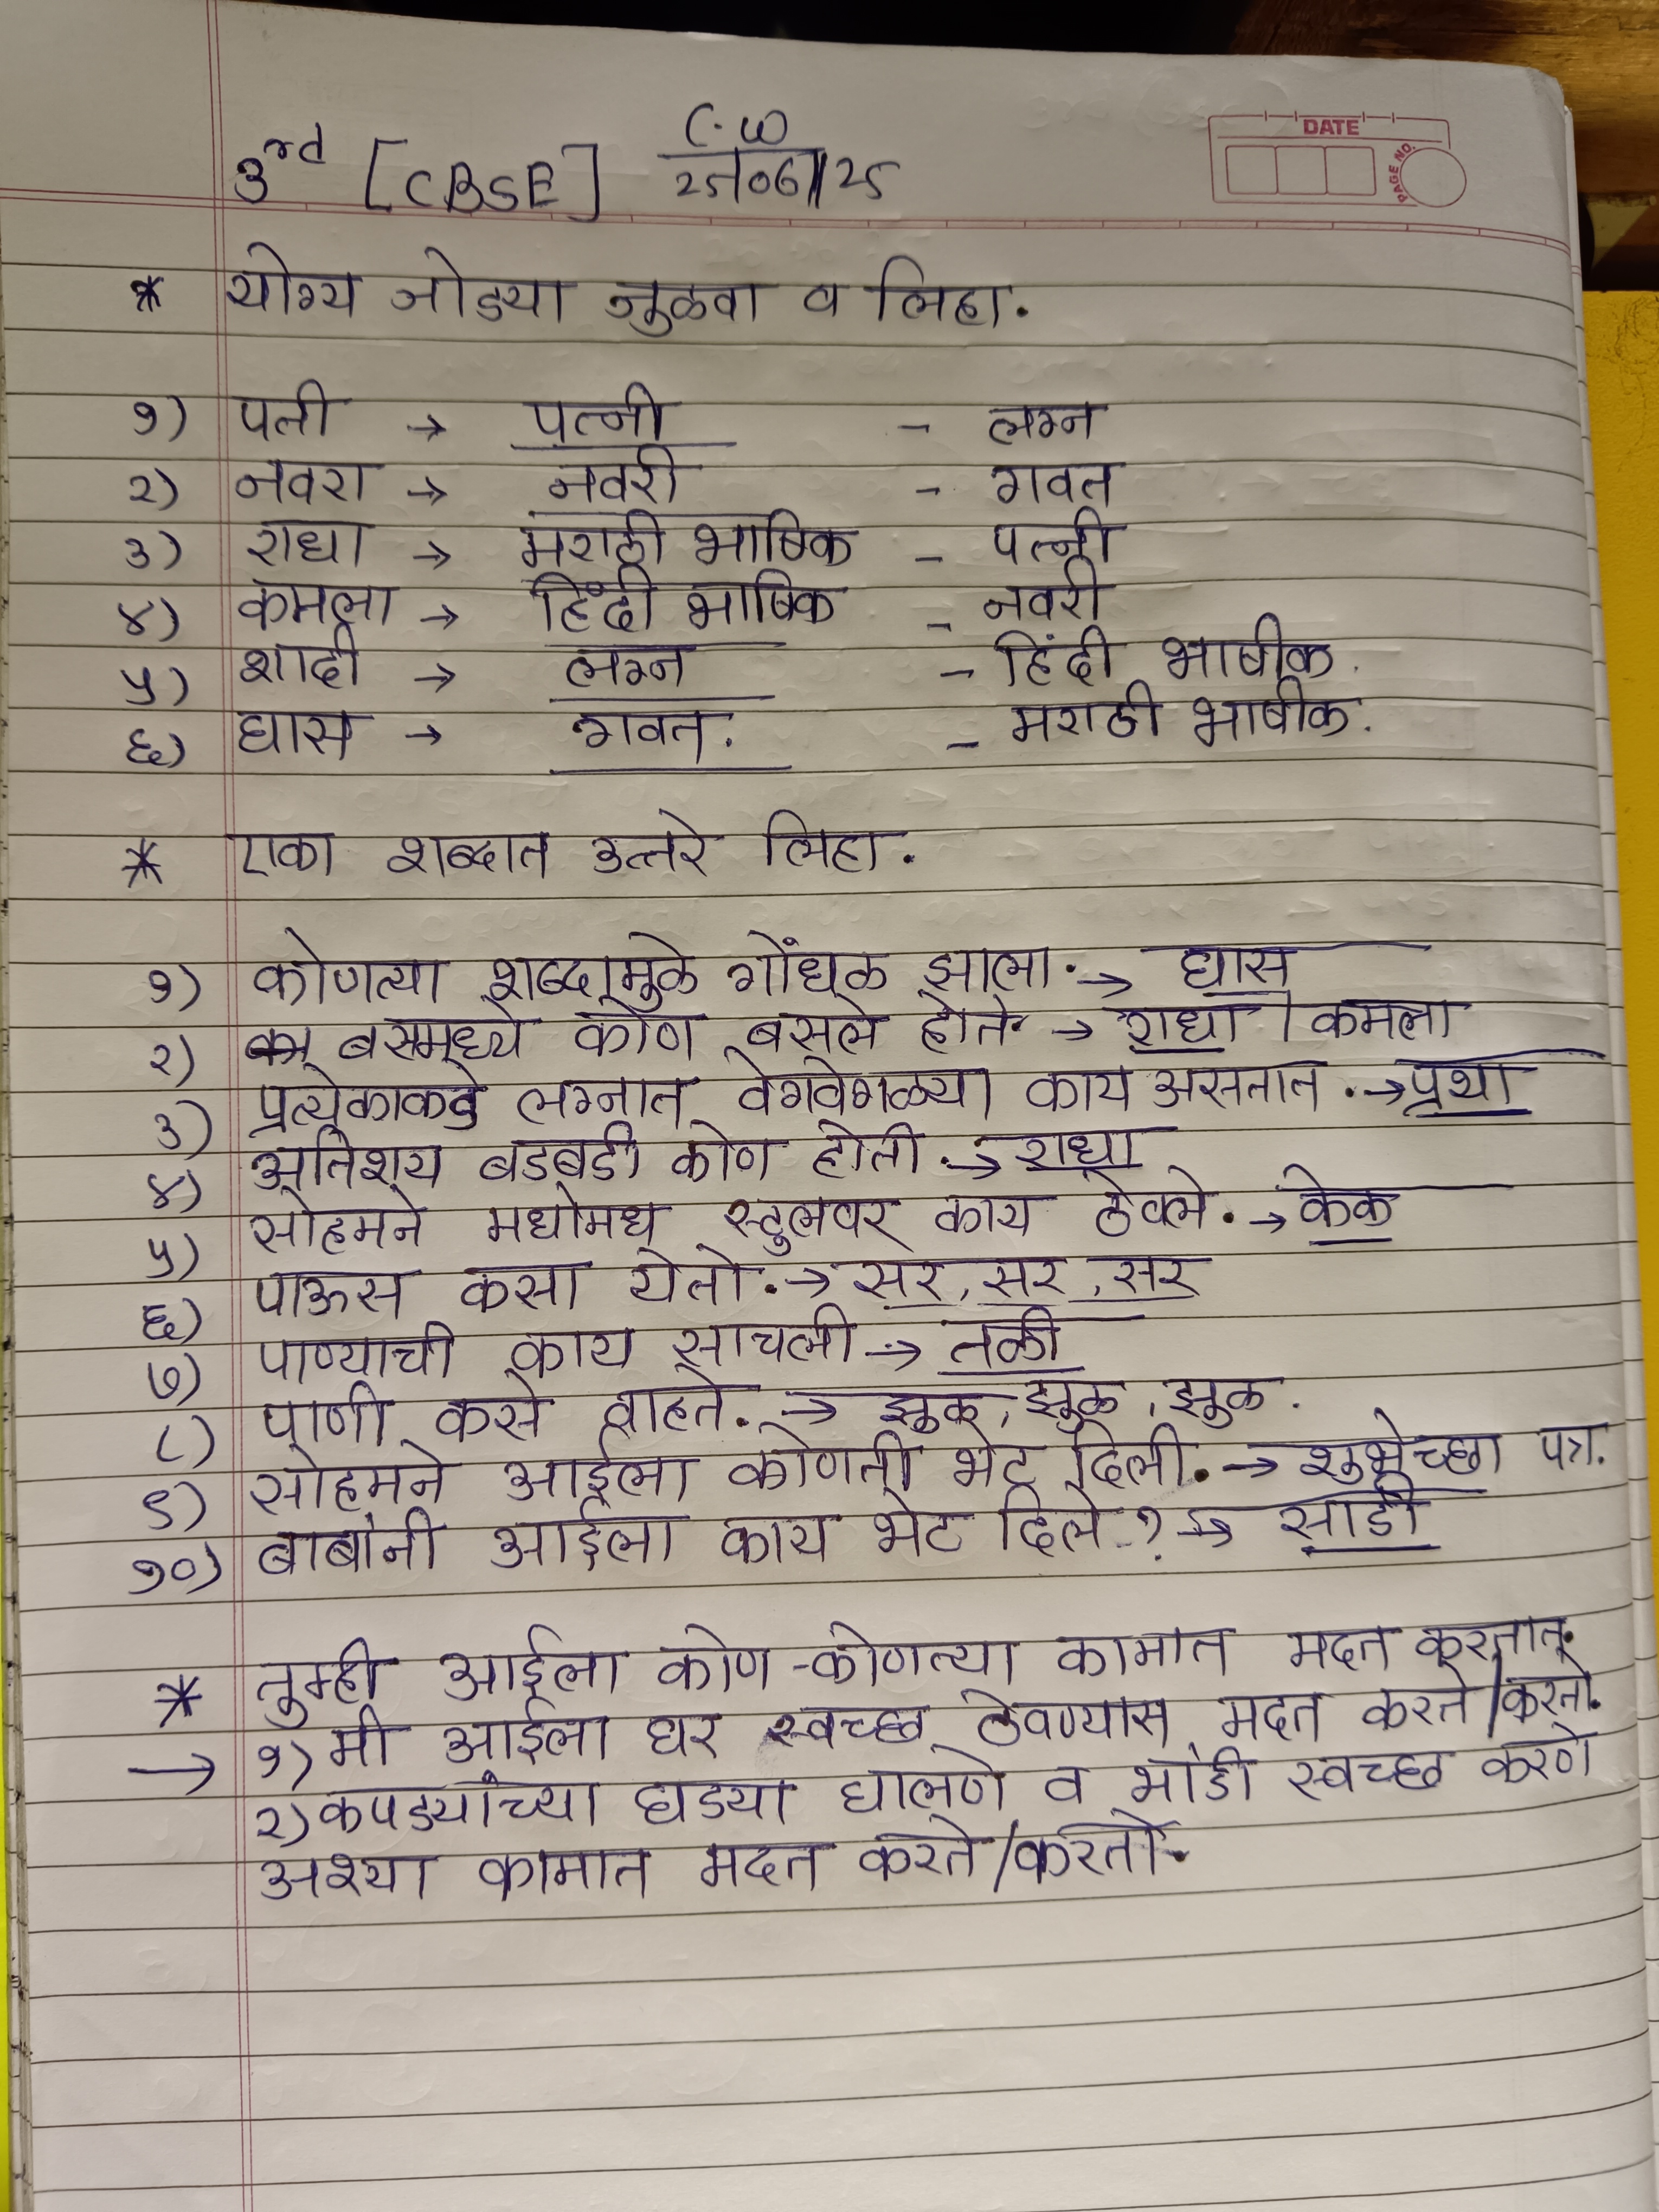 3rd [CBSE] C.W
25/06/25
DATE
PAGE NO.
* योग्य जोड्या जुळवा व लिहा.
१) पती → पत्नी - लग्न
२) नवरा → नवरी - गवत
३) राधा → मराठी भाषिक - पत्नी
४) कमला → हिंदी भाषिक - नवरी
५) शादी → लग्न - हिंदी भाषीक.
६) घास → गवत. - मराठी भाषीक.
* एका शब्दात उत्तरे लिहा.
१) कोणत्या शब्दामुळे गोंधळ झाला. → घास
२) बसमध्ये कोण बसले होते. → राधा / कमला
३) प्रत्येकाकडे लग्नात वेगवेगळ्या काय असतात. → प्रथा
४) अतिशय बडबडी कोण होती. → राधा
५) सोहमने मधोमध स्टुलवर काय ठेवले. → केक
६) पाऊस कसा येतो. → सर, सर, सर
७) पाण्याची काय साचली → तळी
८) पाणी कसे वाहते. → झुळ, झुळ, झुळ.
९) सोहमने आईला कोणती भेट दिली. → शुभेच्छा पत्र.
१०) बाबांनी आईला काय भेट दिले.? → साडी
* तुम्ही आईला कोण-कोणत्या कामात मदत करतात.
→ १) मी आईला घर स्वच्छ ठेवण्यास मदत करते/करतो.
२) कपड्यांच्या घड्या घालणे व भांडी स्वच्छ करणे
अश्या कामात मदत करते/करतो.